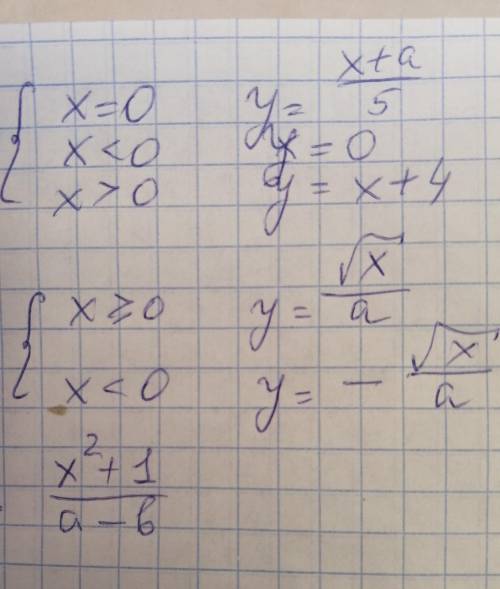 { x = 0 y = (x+a)/5
x < 0 y = 0
x > 0 y = x + 4
{ x ≥ 0 y = √x/a
x < 0 y = - √x/a
(x² + 1)/(a - b)